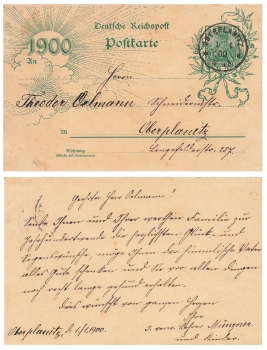 Deutsche Reichspost
Postkarte
1900
An
Herrn
Theodor Oelmann
Schneidermstr.
in
Oberplanitz
Wohnung
(Straße und Hausnummer)
OBERPLANITZ
Geehrter Herr Oelmann!
Sende Ihnen und Ihrer werthen Familie zur
Jahrhundertwende die herzlichsten Glück- und
Segenswünsche, möge Ihnen der himmlische Vater
alles Gute schenken und Sie vor allen Dingen
noch recht lange gesund erhalten.
Dies wünscht von ganzem Herzen
Ihre
Oberplanitz, d. 1/1. 1900.
und Kinder.